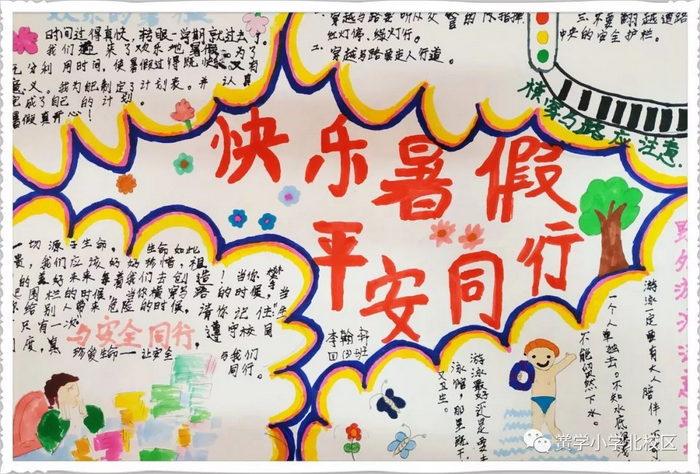 时间过得真快,转眼一学期就过去了
我们迎来了欢乐地暑假。为了
充分利用时间,使暑假过得既快乐又有
意义。我为此制定了计划表。并认真
完成了自己的计划。
暑假真开心!
穿越马路要听从交
红灯停、绿灯行。
二、穿越马路要走人行道。
三、不要翻越道路
中央的安全护栏。
横穿马路应注意
快乐暑假
平安同行
一切源于生命,生命如此
贵,我们应该好好珍惜,祖
的美好未来等着我们去创造!当你
围栏的时候,当你横穿马路的时候,当
给别人带来危险的时候,请你记住生
只有一次
遵守校园
与安全同行
珍爱生命—让安全
与我们
同行。
李翰轩
四(3)班
野外游泳注意
游泳一定要有大人陪伴,不可
一个人单独去。不知水底深浅
不能贸然下水。
游泳最好还是要去
泳馆,那里既干
又卫生。
黄学小学北校区